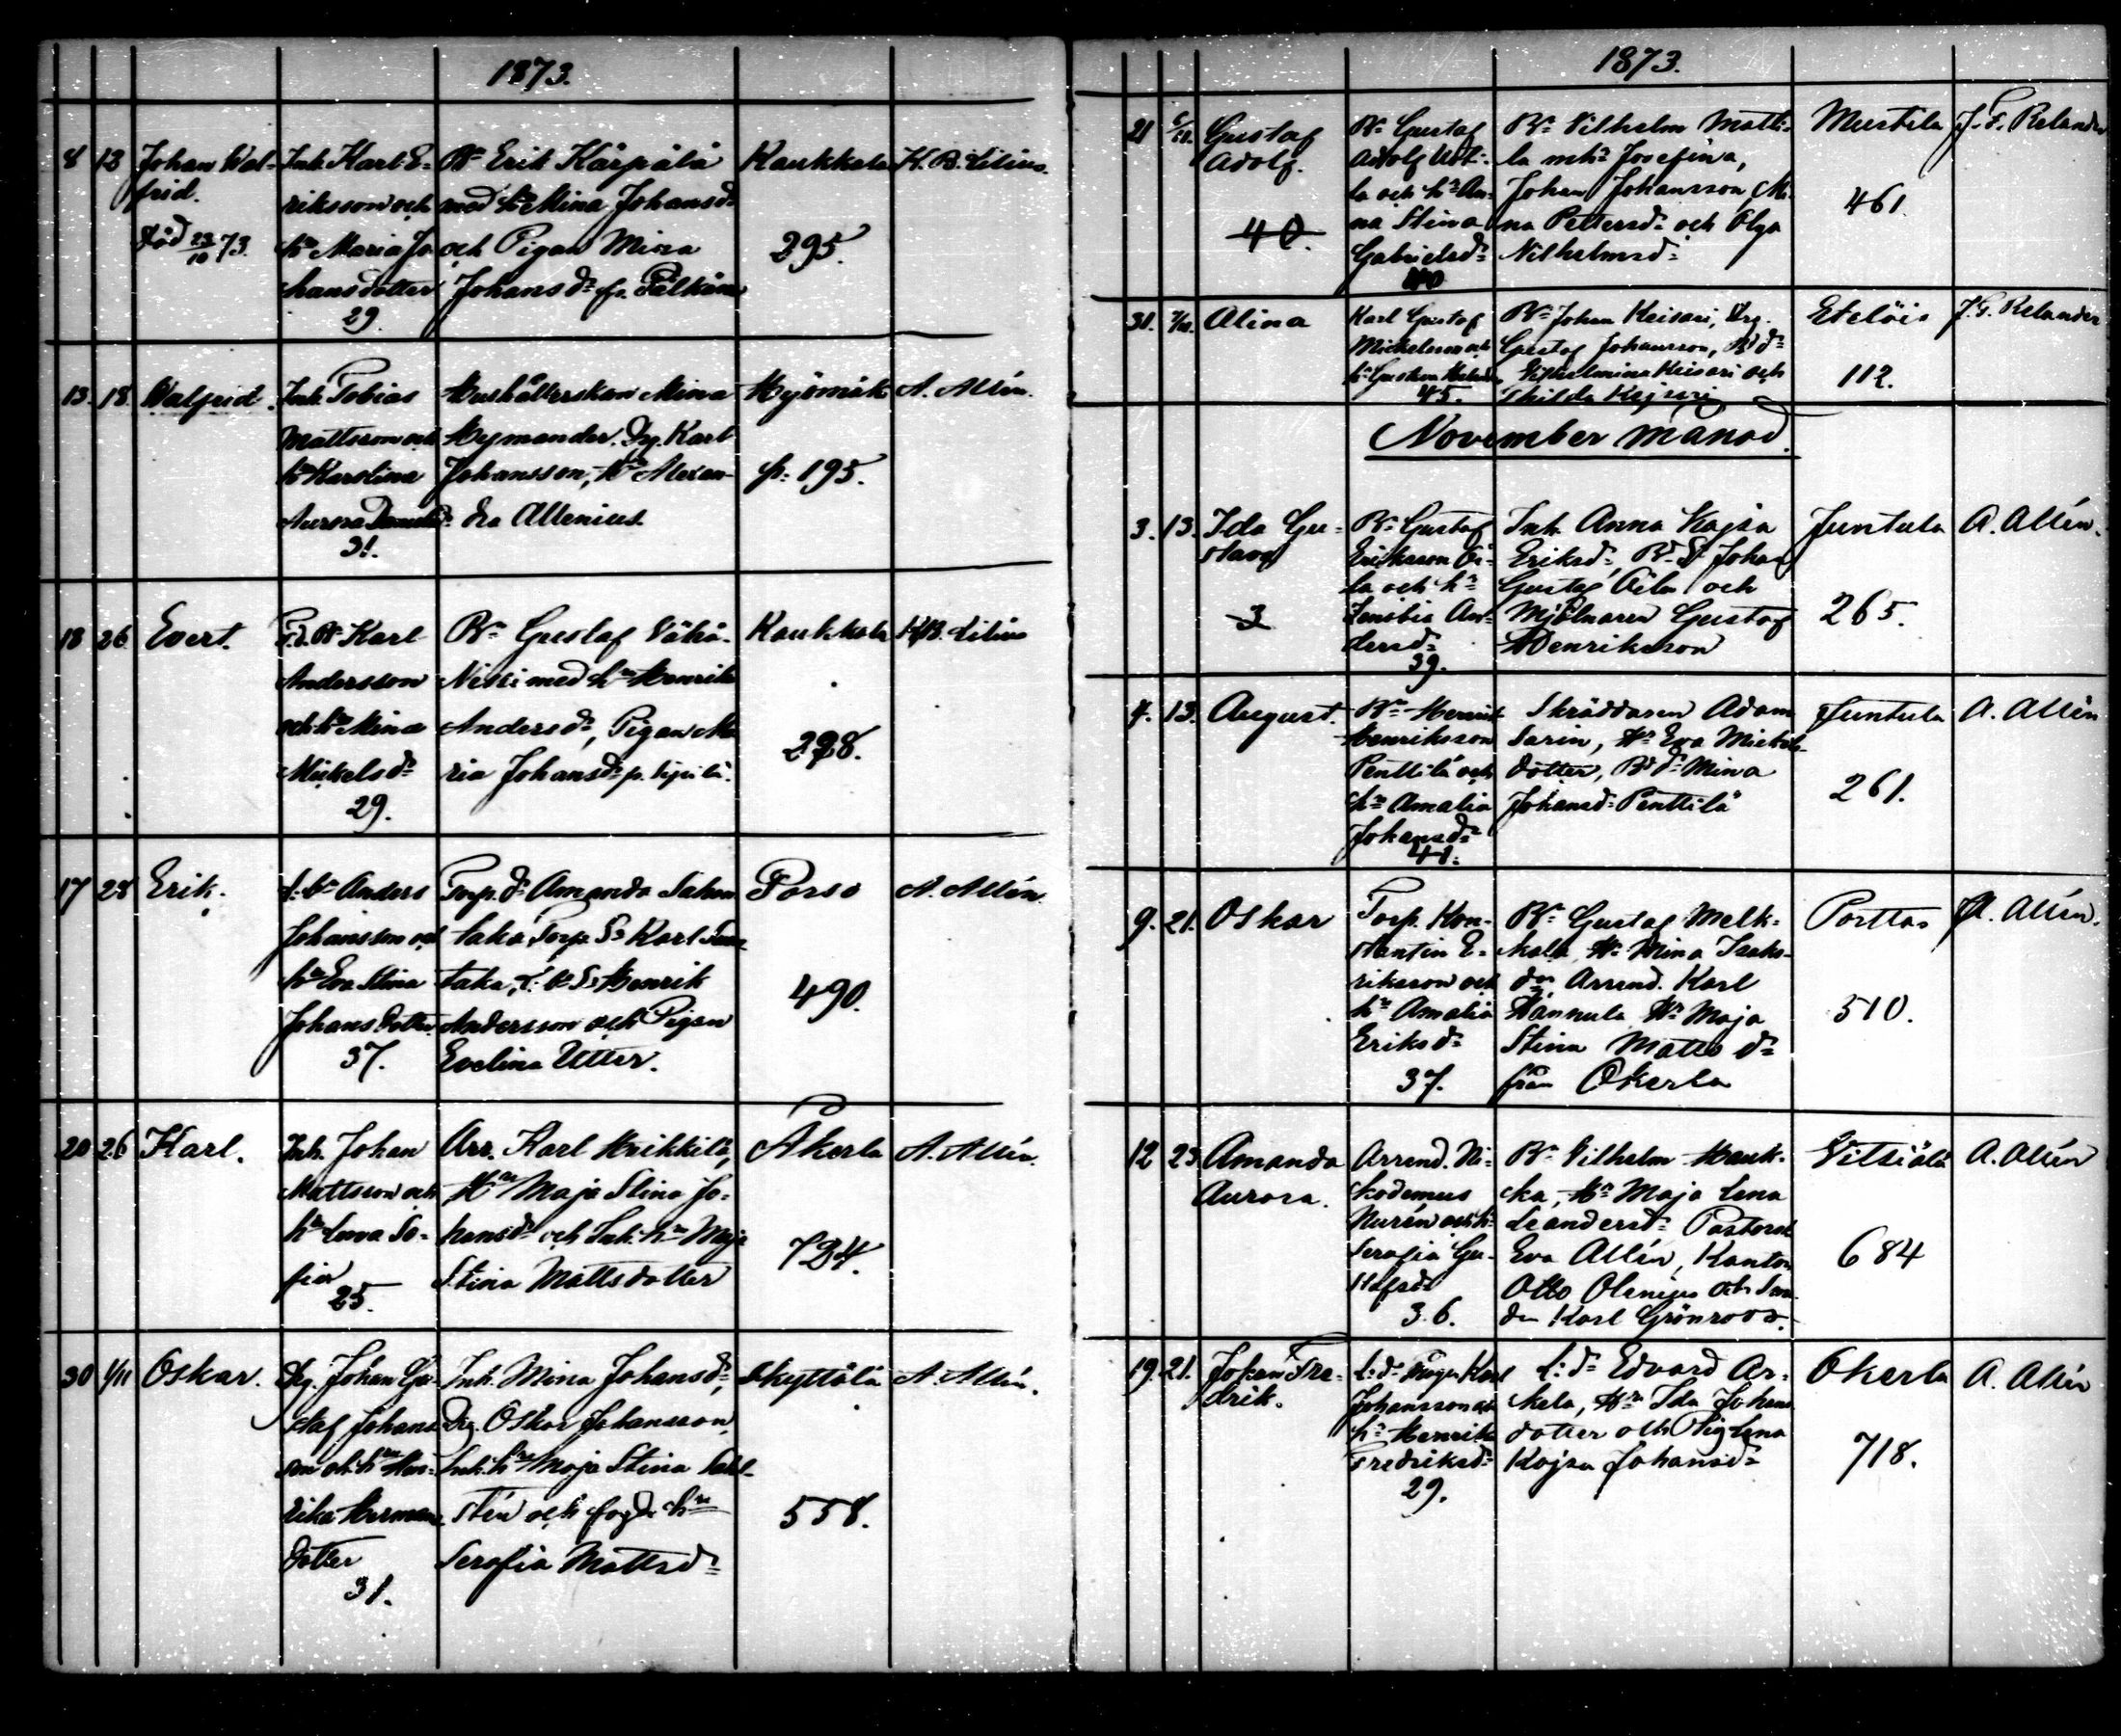 1873.
8 13 Johan Wal-
frid.
Död 23/10 73.
Inh. Karl E-
riksson och
hu Maria Jo-
hansdotter
29.
Bn Erik Kärpälä
med hu Mina Johansdr
och Pigan Mina
Johansdr fr. Pälkäne
Kaukkala
295.
K. B. Lilius.
13. 18. Walfrid.
Inh. Tobias
Mattsson och
hu Karolina
Aurora
31.
Hushållerskan Mina
Hymander, Dg. Karl
Johansson, Hu Alexan-
dra Allenius.
Hyömäk
p. 195.
A. Allén.
18 26 Evert.
Karl
Andersson
och hu Mina
Mickelsdr
29.
Bn Gustaf Vähä-
Nissi med hu Henrika
Andersdr, Pigan Ma
ria Johansdr
Kaukkala
298.
K. B. Lilius
17 28 Erik.
Anders
Johansson och
hu Eva Stina
Johansdotter
37.
Torp. dr Amanda Sahan
taka, Torp. Sn Karl
taka, Henrik
Andersson och Pigan
Evelina Utter.
Porso
490.
A. Allén.
20 26 Karl.
Inh. Johan
Mattsson och
hu Lovisa So-
fia
25.
Arr. Karl Heikkilä,
Hu Maja Stina Jo-
hansdr och Inh. hu Maja
Stina Mattsdotter
Åkerla
724.
A. Allén.
30 1/11 Oskar.
Dg. Johan Gu-
staf Johans-
son och hu Hen-
rika Hermans
dotter
31.
Inh. Mina Johansdr,
Drg. Oskar Johansson,
Inh. hu Maja Stina Sahl-
stén och fogde hu
Serafia Mattsdr
Skyttälä
558.
A. Allén.
1873.
21 Gustaf
Adolf.
40.
Bn Gustaf
Adolf
la och hu An-
na Stina
Gabrielsdr
40
Bn Vilhelm Matti-
la m hu Josefina,
Johan Johansson, Mi-
na Pettersdr och Olga
Vilhelmsdr
Mustila
461.
J. F. Relander
31. Alina
Karl Gustaf
Mickelsson och
hu Gustava
45.
Bn Johan Keisari, Drg.
Gustaf Johansson, Bd dr
Vilhelmina Keisari och
Thilda Keisari
Eteläis
112.
J. F. Relander
November månad.
3. 13. Ida Gu-
stava
3
Bn Gustaf
Eriksson Oi-
la och hu
Senobia An-
dersdr
39.
Inh. Anna Kajsa
Eriksdr, Bd Sn Johan
Gustaf Oila och
Mjölnaren Gustaf
Henriksson
Juntula
265.
A. Allén.
7. 13. August.
Bn Henrik
Henriksson
Penttilä och
hu Amalia
Johansdr
41.
Skräddaren Adam
Sarin, Hu Eva Mickels-
dotter, Bd dr Mina
Johansdr Penttilä
Juntula
261.
A. Allén
9. 21. Oskar
Torp. Kon-
stantin E-
riksson och
hu Amalia
Eriksdr
37.
Bn Gustaf Melk-
kala, Hu Mina Isaks-
dr, Arrend. Karl
Hannula, Hu Maja
Stina Matts dr
från Åkerla
Porttas
510.
A. Allén.
12 23 Amanda
Aurora.
Arrend. Ni-
kodemus
Nurén och hu
Serafia Gu-
stafsdr
36.
Bn Vilhelm Hauk-
ka, Hu Maja Lena
Leandersdr, Pastorsk
Eva Allén, Kantor
Otto Olenius och
Karl Grönroos.
Vitsiälä
684
A. Allén
19. 21. Johan Fre-
drik.
Karl
Johansson och
hu Henrika
Fredriksdr
29.
Edvard Ar-
kela, Hu Ida Johans
dotter och Pig Lena
Kajsa Johansdr
Åkerla
718.
A. Allén